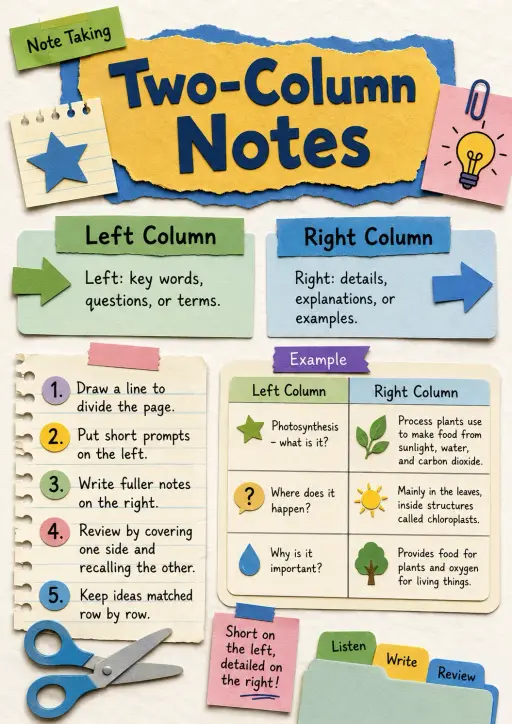 Note Taking
Two-Column
Notes
Left Column
Left: key words,
questions, or terms.
Right Column
Right: details,
explanations, or
examples.
1. Draw a line to
divide the page.
2. Put short prompts
on the left.
3. Write fuller notes
on the right.
4. Review by covering
one side and
recalling the other.
5. Keep ideas matched
row by row.
Example
Left Column
Right Column
Photosynthesis
– what is it?
Process plants use
to make food from
sunlight, water,
and carbon dioxide.
?
Where does it
happen?
Mainly in the leaves,
inside structures
called chloroplasts.
Why is it
important?
Provides food for
plants and oxygen
for living things.
Short on
the left,
detailed on
the right!
Listen
Write
Review